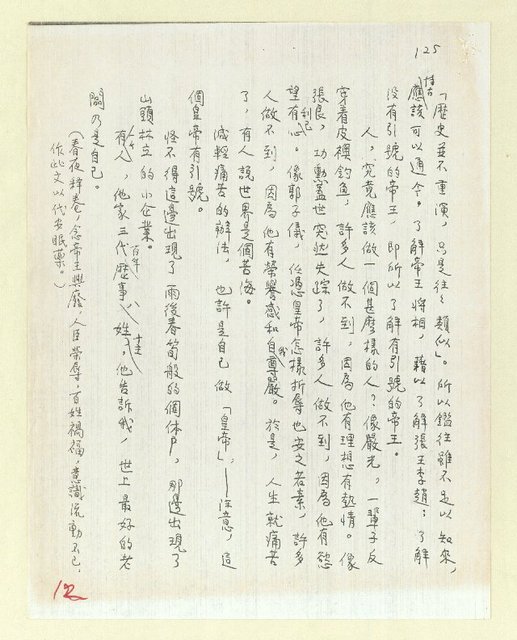 125
「歷史並不重演，只是往往類似」。所以鑑往雖不足以知來，
博古應該可以通今。了解帝王將相，藉以了解張王李趙；了解
没有引號的帝王，即所以了解有引號的帝王。
人，究竟應該做一個甚麼樣的人？像嚴光，一輩子反
穿着皮襖釣魚，許多人做不到，因為他有理想有熱情。像
張良，功勳蓋世突然失踪了，許多人做不到，因為他有慾
望有利己心。像郭子儀，任憑皇帝怎樣折辱也安之若素，許多
人做不到，因為他有榮譽感和自我尊嚴。於是，人生就痛苦
了，有人說世界是個苦海。
減輕痛苦的辦法，也許是自己做「皇帝」，——注意，這
個皇帝有引號。
怪不得這邊出現了雨後春筍般的個体户，那邊出現了
山頭林立的小企業。
有人，他家三代百年歷事八姓十主，他告訴我，世上最好的老
闆乃是自己。
（春夜料峭，念帝王興廢，人臣榮辱，百姓禍福，意識流動不已，
作此文以代安眠藥。）
12